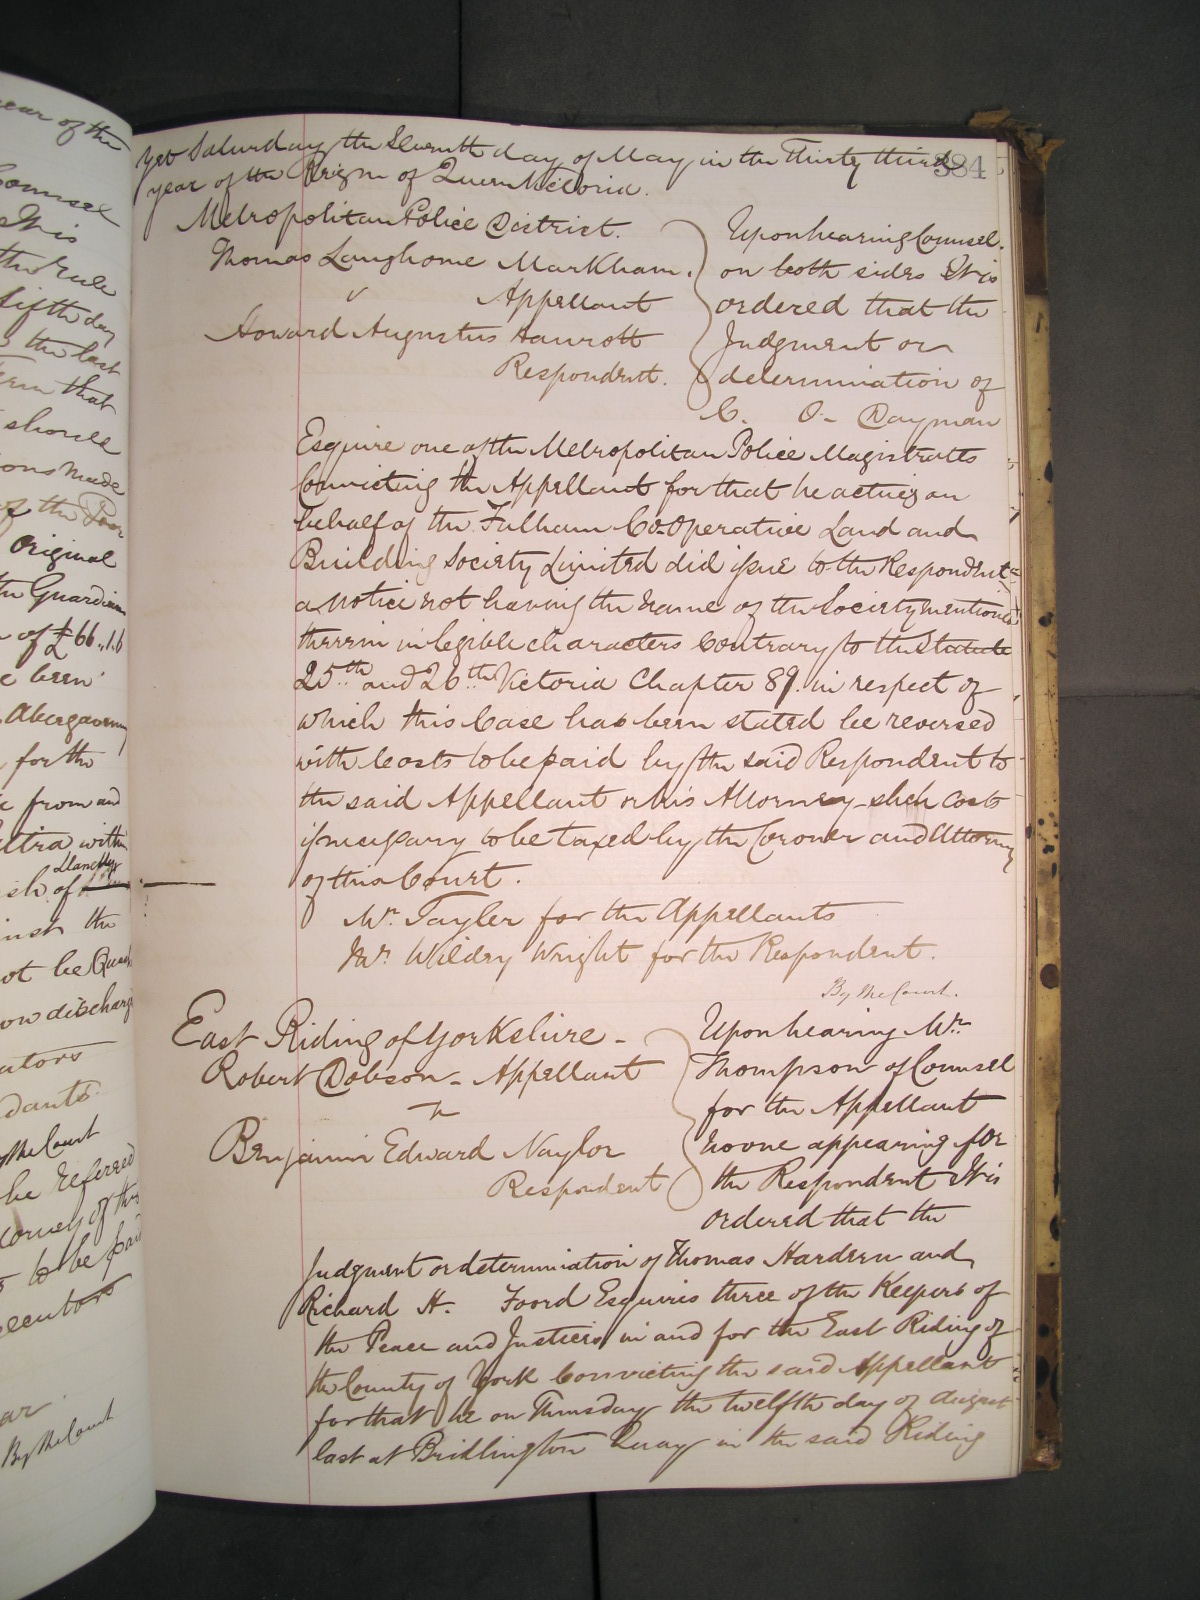 year of the
Counsel
It is
the Rule
fifth day
the last
Term that
should
ions made
of the Poor
Original
the Guardians
of £66..1.6
been
Abergavenny
for the
from and
within
Llanelly
ish of
inst the
not be Quash
now discharg
By the Court
be referred
Coroner of this
to be paid
By the Court
384
Yet Saturday the Seventh day of May in the Thirty third
year of the Reign of Queen Victoria.
Metropolitan Police District.
Thomas Langhorne Markham.
Appellant
v
Howard Augustus
Respondent.
Upon hearing Counsel.
on both sides It is
ordered that the
Judgment or
determination of
C. O- Dayman
Esquire one of the Metropolitan Police Magistrates
Convicting the Appellant for that he acting on
behalf of the Fulham Co-Operative Land and
Building Society Limited did issue to the Respondent
a Notice not having the name of the Society mentioned
therein in legible characters Contrary to the Statute
25th and 26th Victoria Chapter 89. in respect of
which this Case has been stated be reversed
with Costs to be paid by the said Respondent to
the said Appellant or his Attorney such Costs
if necessary to be taxed by the Coroner and Attorney
of this Court.
Mr. Tayler for the Appellants
Mr. Wildey Wright for the Respondent.
By the Court.
East Riding of Yorkshire -
Robert Dobson - Appellant
v
Benjamin Edward Naylor
Respondent
Upon hearing Mr.
Thompson of Counsel
for the Appellant
no one appearing for
the Respondent It is
ordered that the
Judgment or determination of Thomas Hardern and
Richard H. Foord Esquires three of the Keepers of
the Peace and Justices in and for the East Riding of
the County of York Convicting the said Appellant
for that he on Thursday the twelfth day of August
last at Bridlington Quay in the said Riding